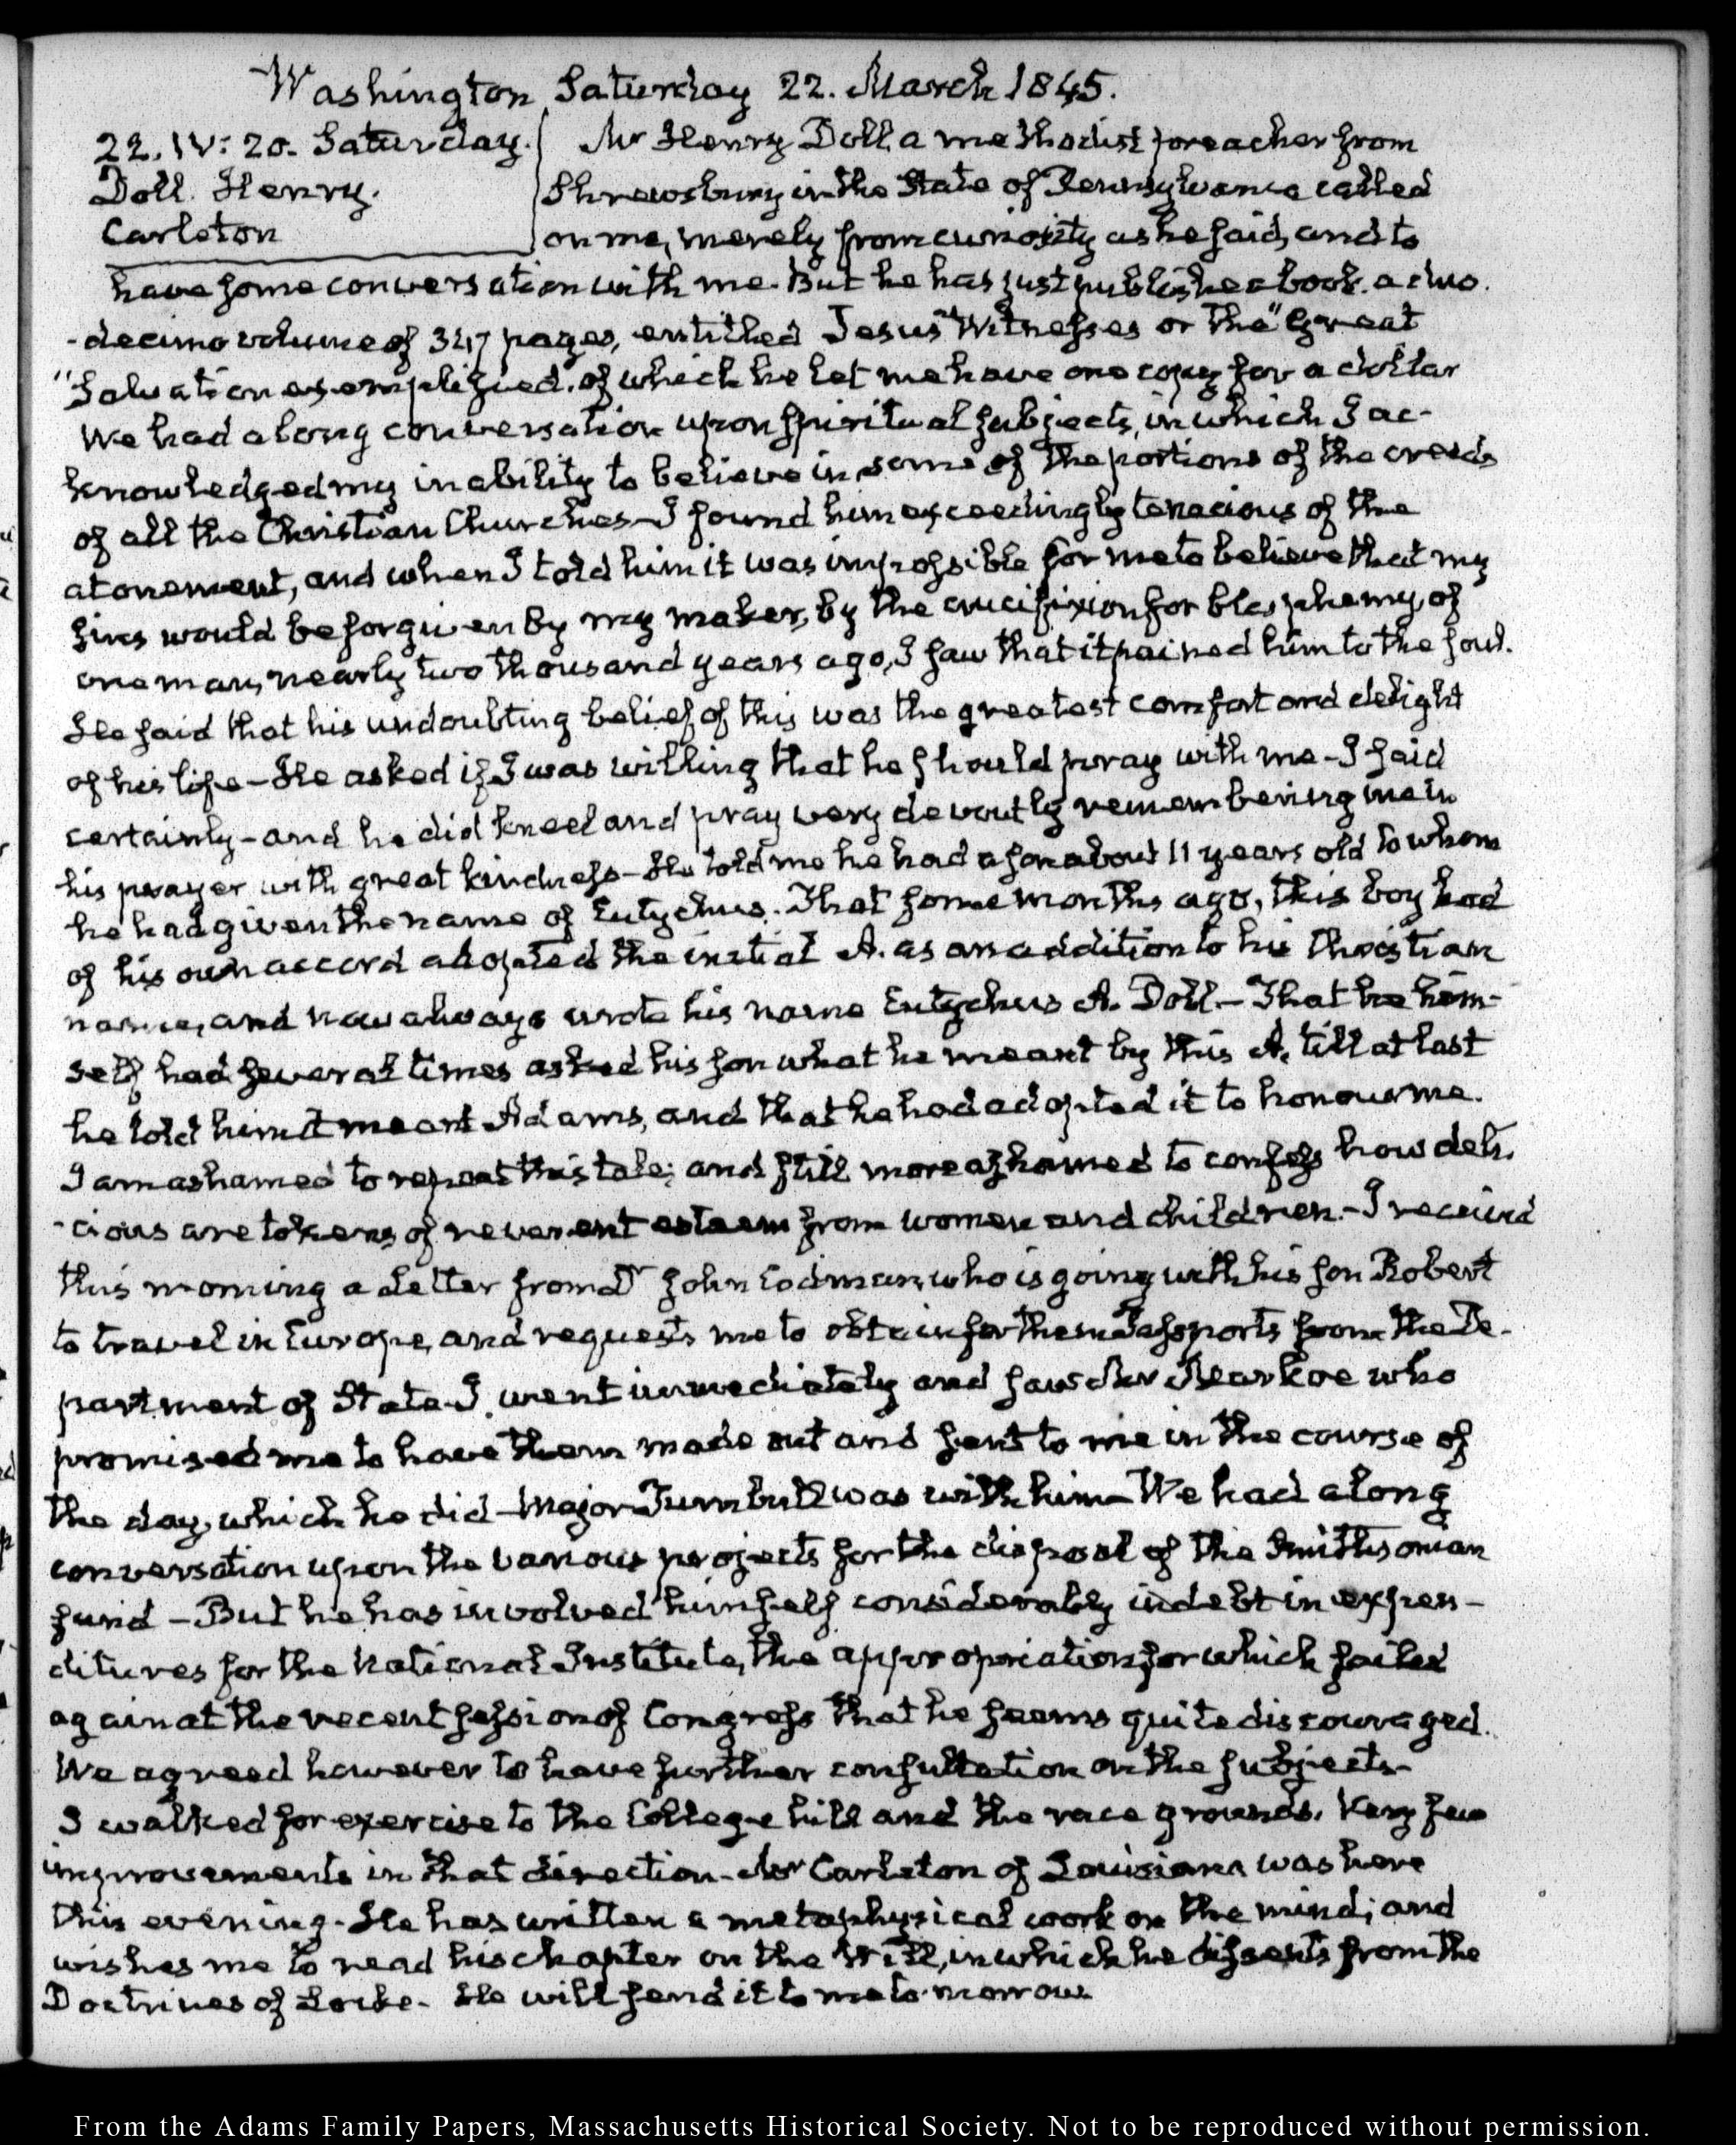 Washington Saturday 22. March 1845.
22. IV: 20. Saturday.
Doll. Henry.
Carleton
Mr Henry Doll, a methodist preacher from
Shrewsbury in the State of Pennsylvania called
on me, merely from curiosity as he said, and to
have some conversation with me. But he has just published a book. a duo.
-decimo volume of 347 pages, entitled Jesus "Witnesses or the "Great
"Salvation exemplified. of which he let me have one copy for a dollar
We had a long conversation upon spiritual subjects, in which I ac-
knowledged my inability to believe in some of the portions of the creeds
of all the Christian Churches—I found him exceedingly tenacious of the
atonement, and when I told him it was impossible for me to believe that my
sins would be forgiven by my maker, by the crucifixion for blasphemy, of
one man, nearly two thousand years ago, I saw that it pained him to the soul.
He said that his undoubting belief of this was the greatest comfort and delight
of his life—He asked if I was willing that he should pray with me—I said
certainly—and he did kneel and pray very devoutly remembering me in
his prayer with great kindness—He told me he had a son about 11 years old to whom
he had given the name of Eutychus. That some months ago, this boy had
of his own accord adopted the initial A. as an addition to his Christian
name, and now always wrote his name Eutychus A. Doll—That he him-
self had several times asked his son what he meant by this A, till at last
he told him it meant Adams, and that he had adopted it to honour me.
I am ashamed to repeat this tale; and still more ashamed to confess how deli.
-cious are tokens of reverent esteem from women and children.—I received
this morning a Letter from Dr John Codman, who is going with his son Robert
to travel in Europe, and requests me to obtain for them Passports from the De-
partment of State. I went immediately and saw Mr Markoe who
promised me to have them made out and sent to me in the course of
the day, which he did—Major Turnbull was with him—We had a long
conversation upon the various projects for the disposal of the Smithsonian
fund—But he has involved himself considerably in debt in expen-
ditures for the National Institute, the appropriation for which failed
again at the recent session of Congress that he seems quite discouraged.
We agreed however to have further consultation on the subjects—
I walked for exercise to the College hill and the race grounds. Very few
improvements in that direction—Mr Carleton of Louisiana was here
this evening. He has written a metaphysical work on the mind; and
wishes me to read his chapter on the Will, in which he dissents from the
Doctrines of Locke. He will send it to me to-morrow.
From the Adams Family Papers, Massachusetts Historical Society. Not to be reproduced without permission.